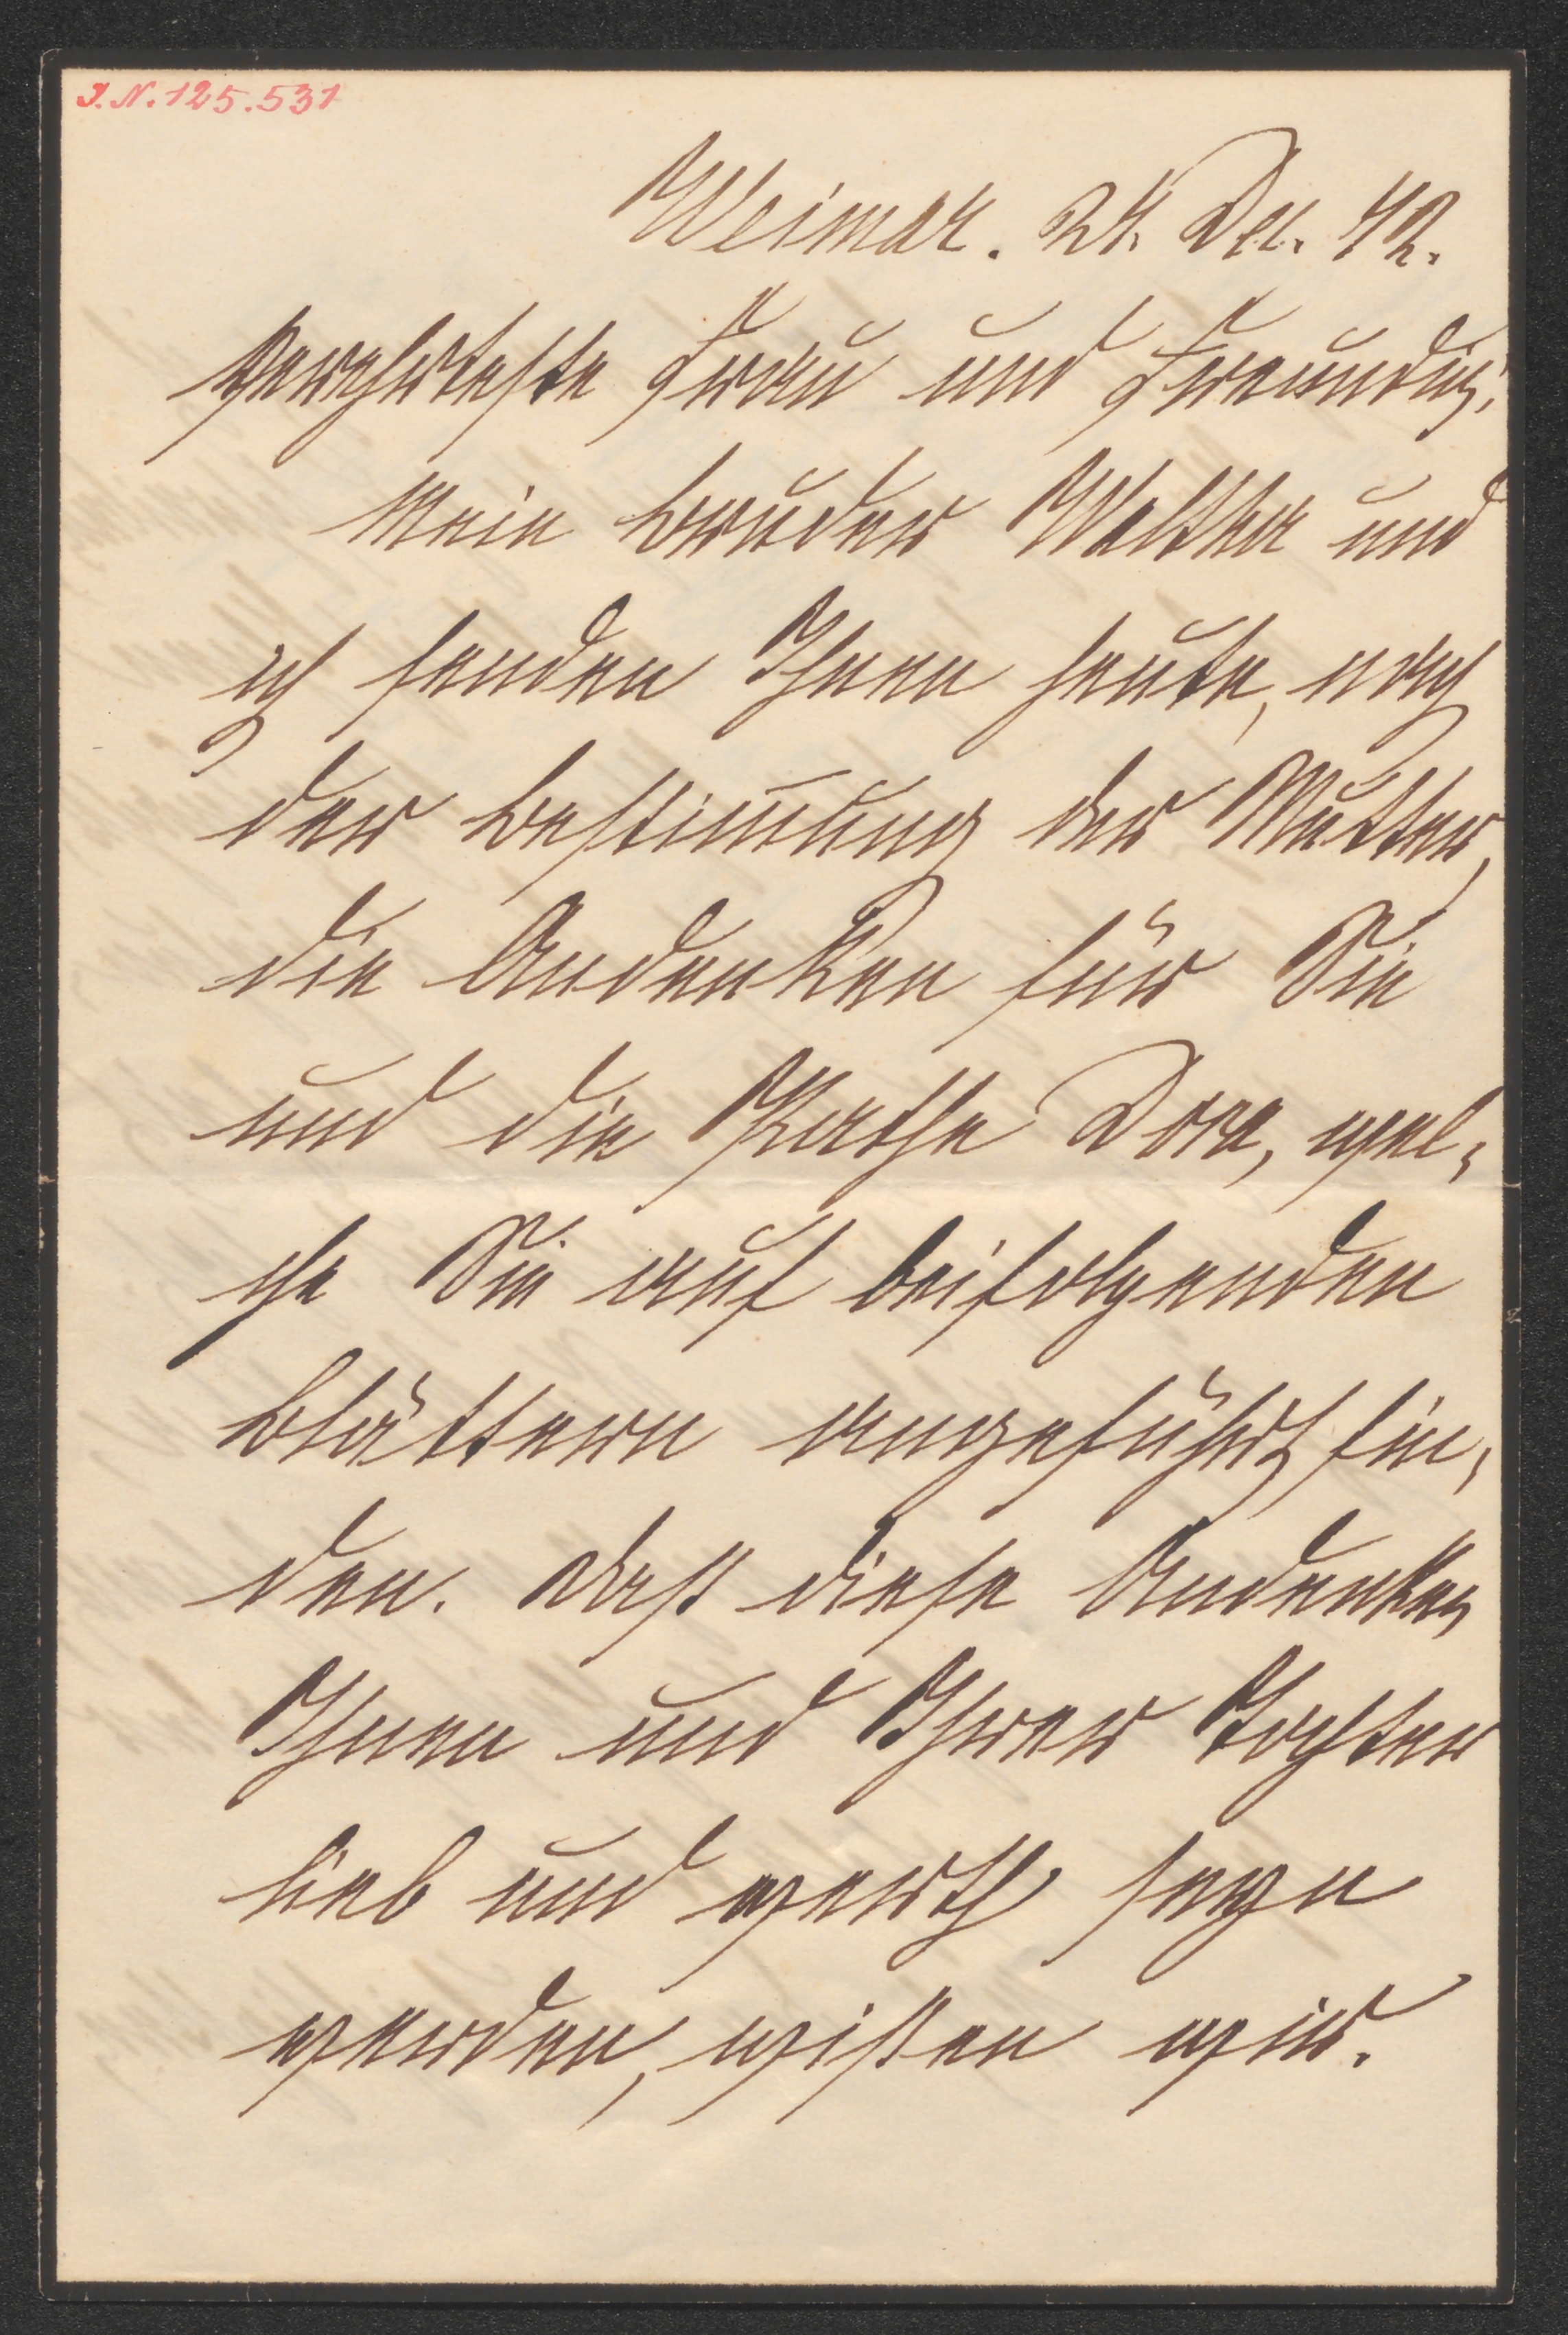 I. N. 125.531
Weimar. 24. Dec. 72.
Verehrteste Frau und Freundin!
Mein Bruder Walther und
ich senden Ihnen heute, nach
der Bestim̄ung der Mutter,
die Andenken für Sie
und die Pathe Dora, wel-
che Sie auf beifolgenden
Blättern angeführt fin-
den. Daß diese Andenken
Ihnen und Ihrer Tochter
lieb und werth seyn
werden, wißen wir.